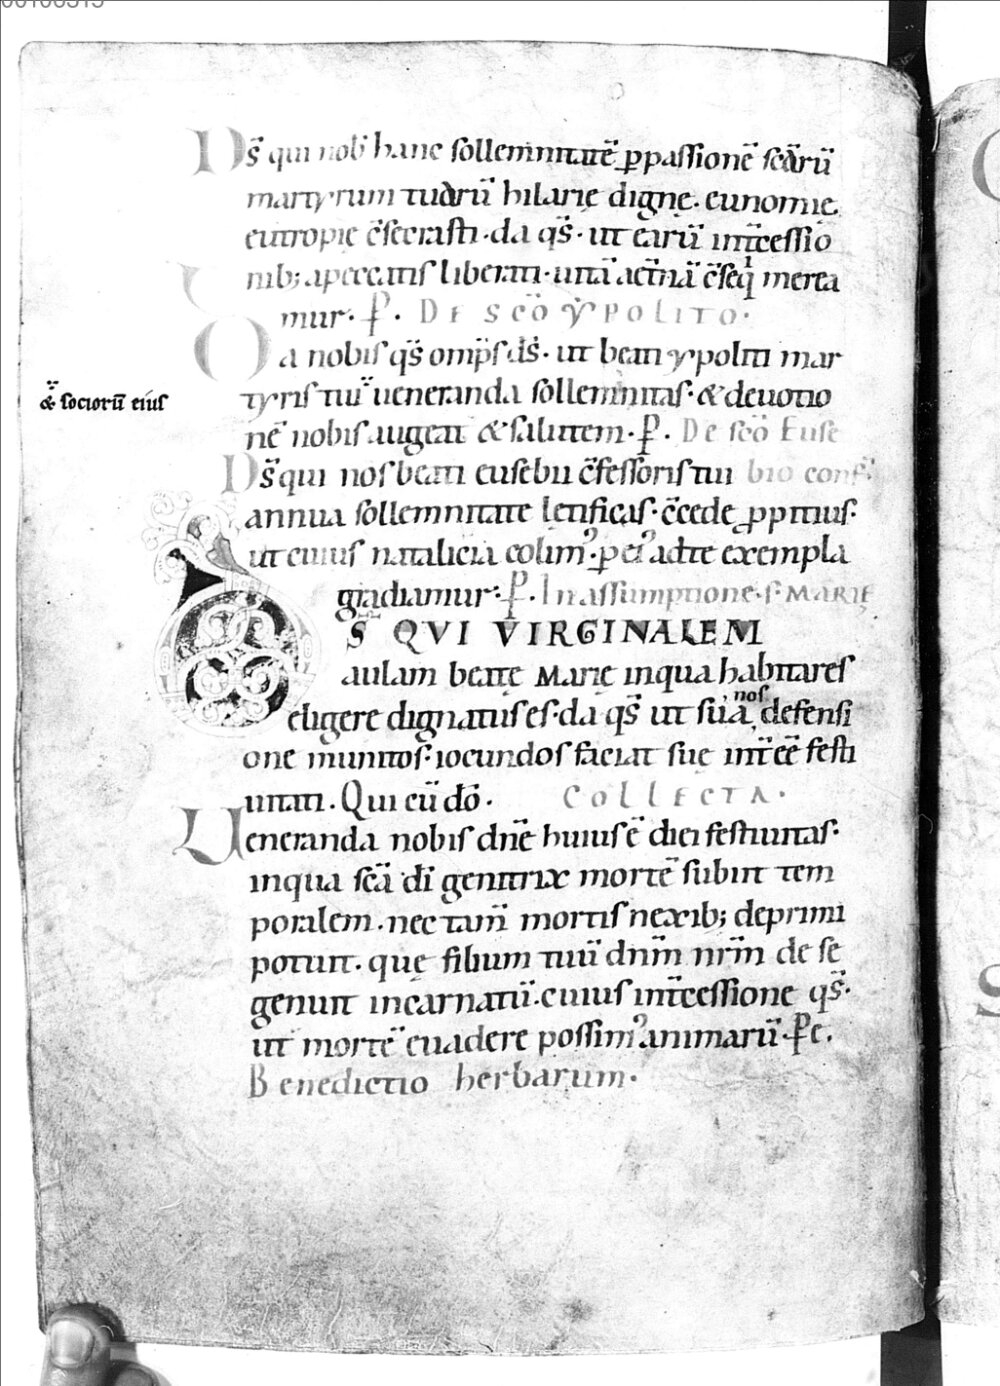 Ds̄ qui nob̄ hanc sollemnitatē ꝑpassionē scārū
martyrum tuarū hilarię dignę. eunomię
eutropię c̄secrasti. da qs̄. ut earū int̄cessio
nib; apeccatis liberati. uitā aet̄nā c̄seqͥ merea
mur. P. DE SCŌ YPOLITO.
Da nobis qs̄ omp̄s d̄s. ut beati ypoliti mar
tyris tui ueneranda sollemnitas. & deuotio
& sociorū eius
nē nobis augeat & salutem. P. De scō Euse
Ds̄ qui nos beati eusebii c̄fessoris tui bio conf.
annua sollemnitate lętificas. c̄cede ꝓpitius.
ut cuius natalicia colimꝰ. ꝑ eiꝰ adte exempla
gradiamur. P. In assumptione. s. MARIĘ
DS̄ QVI VIRGINALEM
aulam beatę Marię inqua habitares
eligere dignatus es. da qs̄ ut suā nos defensi
one munitos. iocundos faciat suę int̄eē festi
uitati. Qui cū dō. COLLECTA.
Ueneranda nobis dnē huius ē diei festiuitas.
inqua scā di genitrix mortē subiit tem
poralem. nec tam̄ mortis nexib; deprimi
potuit. quę filium tuū dnm̄ nrm̄ de se
genuit incarnatū. cuius int̄cessione qs̄.
ut mortē euadere possimꝰ animarū. Pe.
Benedictio herbarum.